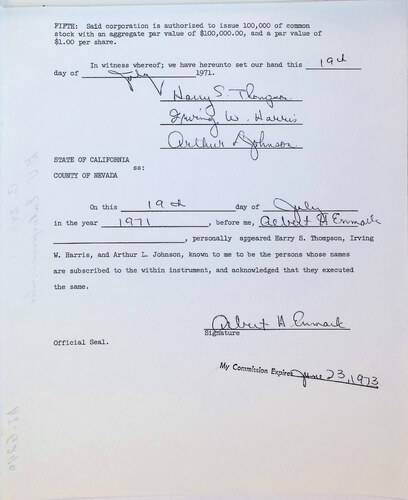 FIFTH: Said corporation is authorized to issue 100,000 of common
stock with an aggregate par value of $100,000.00, and a par value of
$1.00 per share.
In witness whereof; we have hereunto set our hand this 19th
day of July 1971.
Harry S. Thompson
Irving W. Harris
Arthur L Johnson
STATE OF CALIFORNIA
ss:
COUNTY OF NEVADA
On this 19th day of July
in the year 1971, before me, Albert H Enmark
, personally appeared Harry S. Thompson, Irving
W. Harris, and Arthur L. Johnson, known to me to be the persons whose names
are subscribed to the within instrument, and acknowledged that they executed
the same.
Albert H Enmark
Signature
Official Seal.
My Commission Expires June 23, 1973